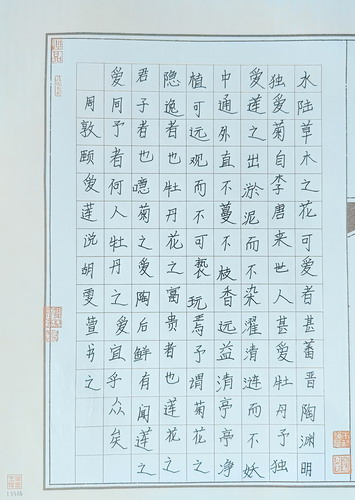 水陆草木之花可爱者甚蕃晋陶渊明
独爱菊自李唐来世人甚爱牡丹予独
爱莲之出淤泥而不染濯清涟而不妖
中通外直不蔓不枝香远益清亭亭净
植可远观而不可亵玩焉予谓菊花之
隐逸者也牡丹花之富贵者也莲花之
君子者也噫菊之爱陶后鲜有闻莲之
爱同予者何人牡丹之爱宜乎众矣
周敦颐爱莲说胡雯萱书之